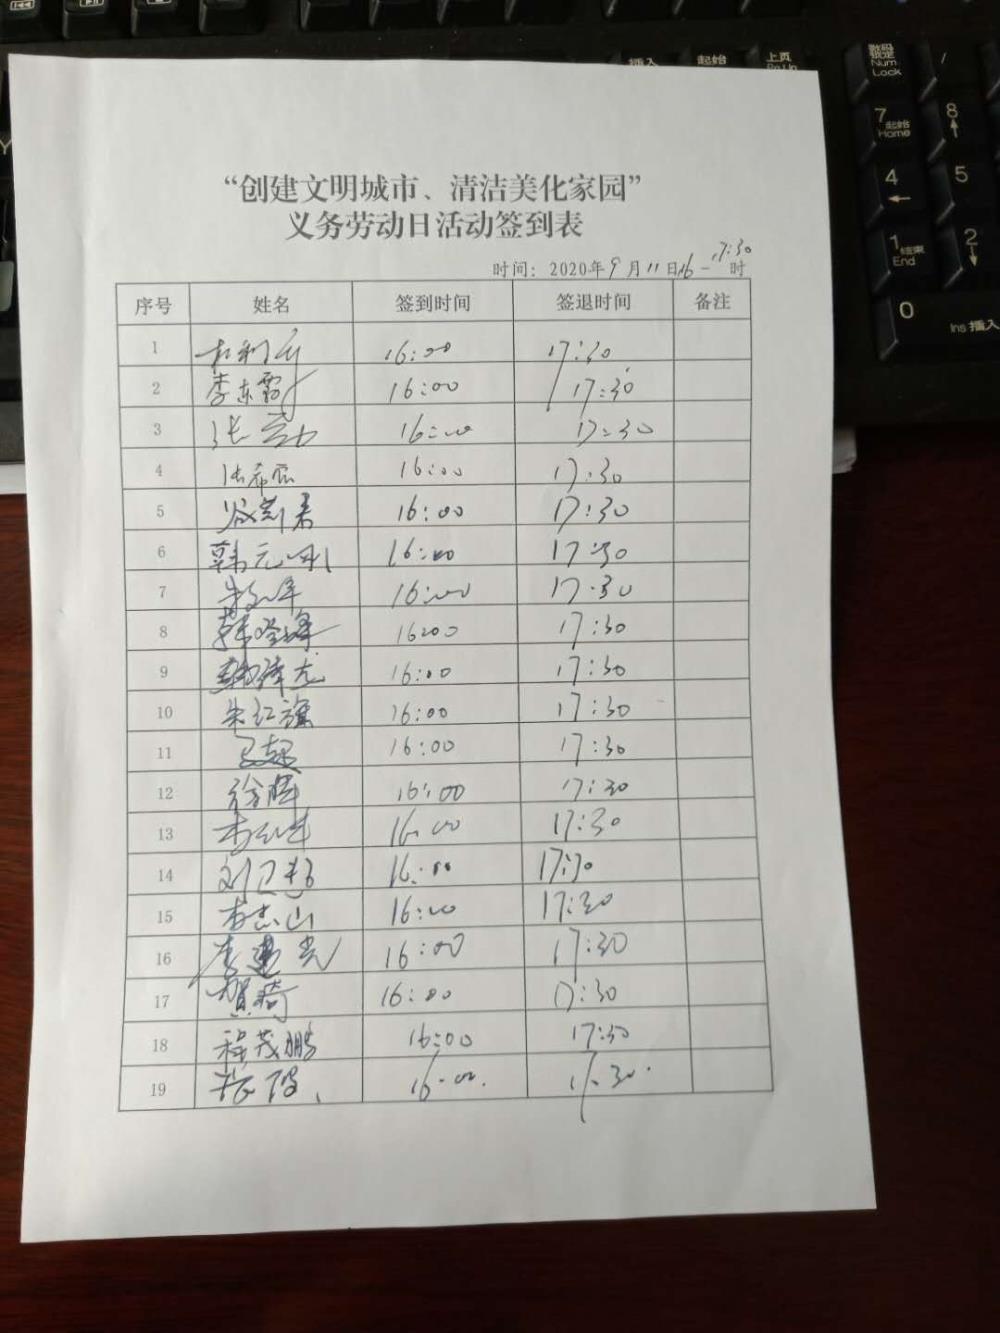 插入
起始
上页
数码锁定
Num
Lock
/
7 起始
Home
8
4
5
1 结束
End
2
0
Ins 插入
Y
“创建文明城市、清洁美化家园”
义务劳动日活动签到表
时间：2020年9月11日16－17:30时
序号 姓名 签到时间 签退时间 备注
1 16:00 17:30
2 李东霞 16:00 17:30
3 张 16:00 17:30
4 张希 16:00 17:30
5 16:00 17:30
6 韩元 16:00 17:30
7 16:00 17:30
8 韩晓峰 16:00 17:30
9 16:00 17:30
10 朱红旗 16:00 17:30
11 16:00 17:30
12 徐辉 16:00 17:30
13 16:00 17:30
14 刘卫 16:00 17:30
15 李杰山 16:00 17:30
16 李建光 16:00 17:30
17 贺琦 16:00 17:30
18 程茂鹏 16:00 17:30
19 16:00 17:30